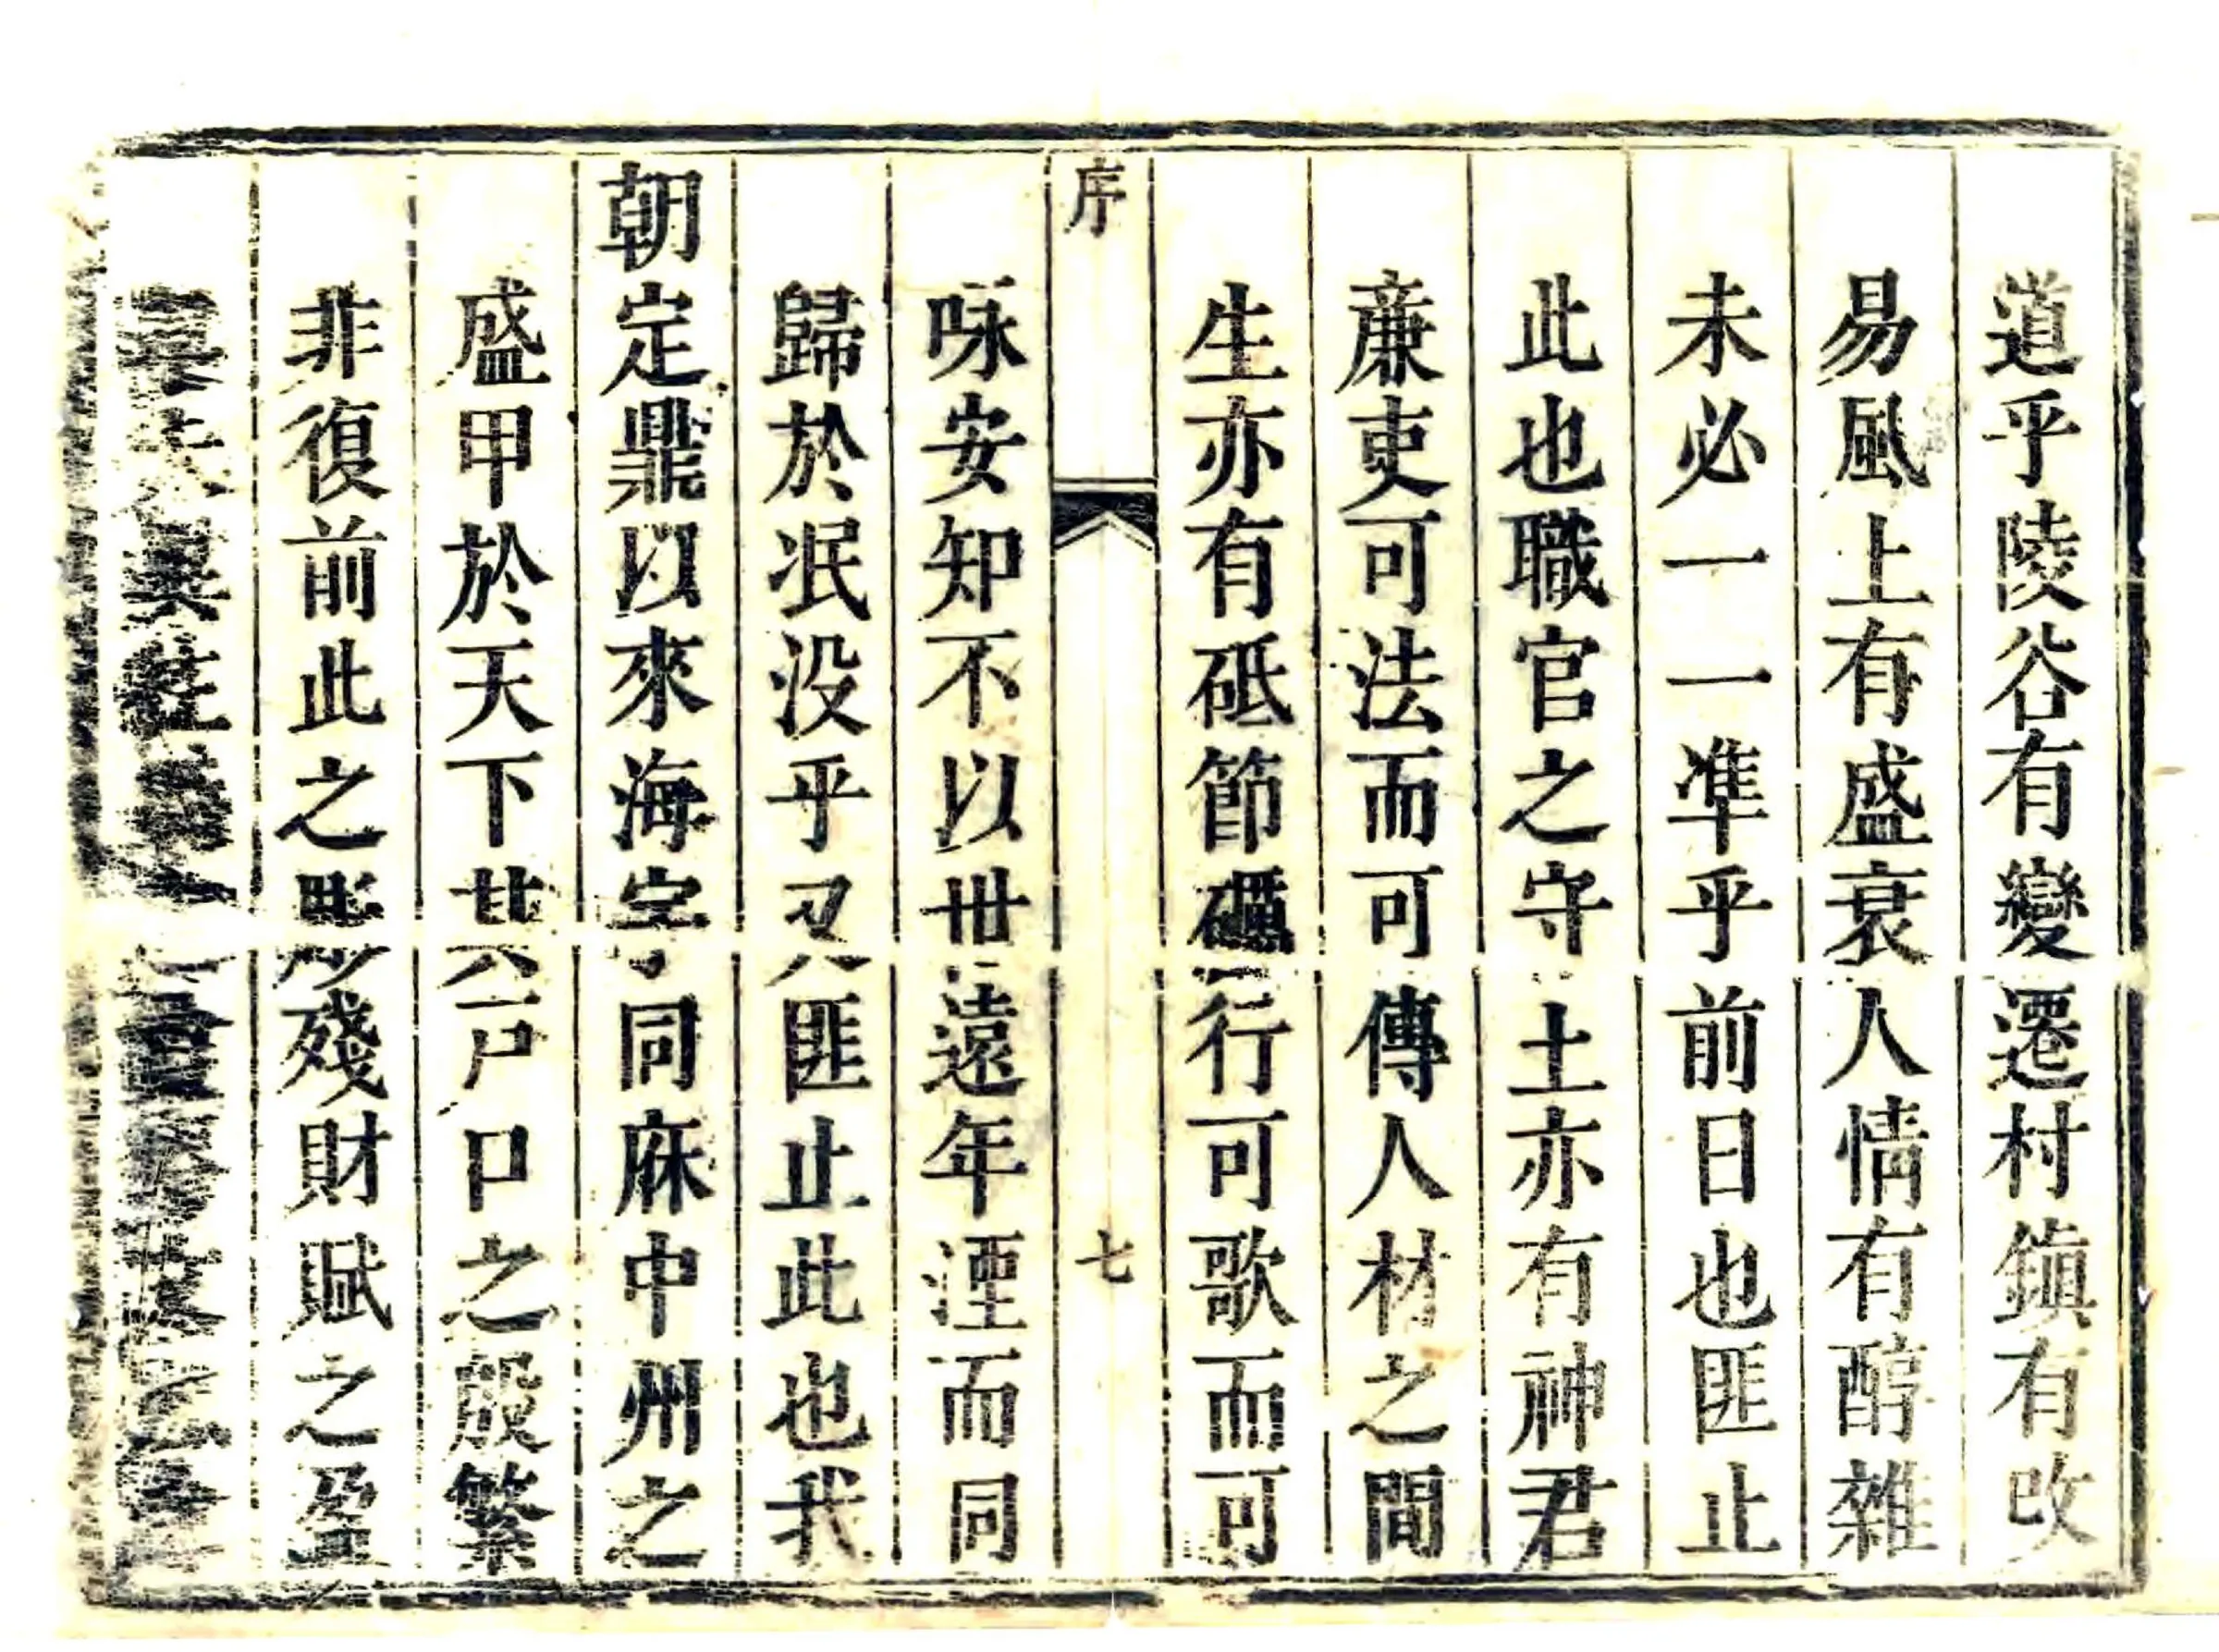 道乎陵谷有變遷村鎮有改
易風上有盛衰人情有醇雜
未必一一準乎前日也匪止
此也職官之守土亦有神君
廉吏可法而可傳人材之間
生亦有砥節礪行可歌而可
序
七
咏安知不以世遠年湮而同
歸於泯没乎又匪止此也我
朝定鼎以來海宇同庥中州之
盛甲於天下其戸口之殷繁
非復前此之彫殘財賦之盈